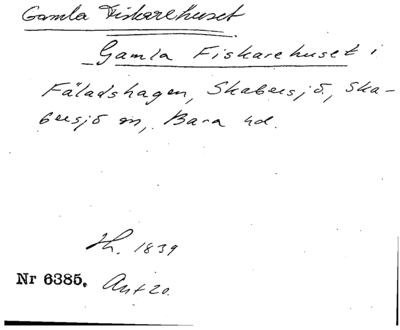 Gamla Fiskarehuset
Gamla Fiskarehuset i
Fäladshagen, Skabersjö, Ska-
bersjö sn, Bara hd.
Jh. 1839
Nr 6385. Ant 20.